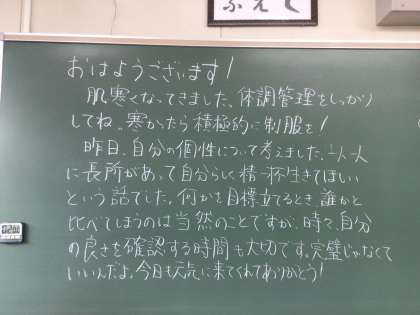 おはようございます!
肌寒くなってきました。体調管理をしっかり
してね。寒かったら積極的に制服を!
昨日、自分の個性について考えました。一人一人
に長所があって自分らしく精一杯生きてほしい
という話でした。何かを目標立てるとき、誰かと
比べてしまうのは当然のことですが、時々、自分
の良さを確認する時間も大切です。完璧じゃなくて
いいんだよ。今日も元気に来てくれてありがとう!